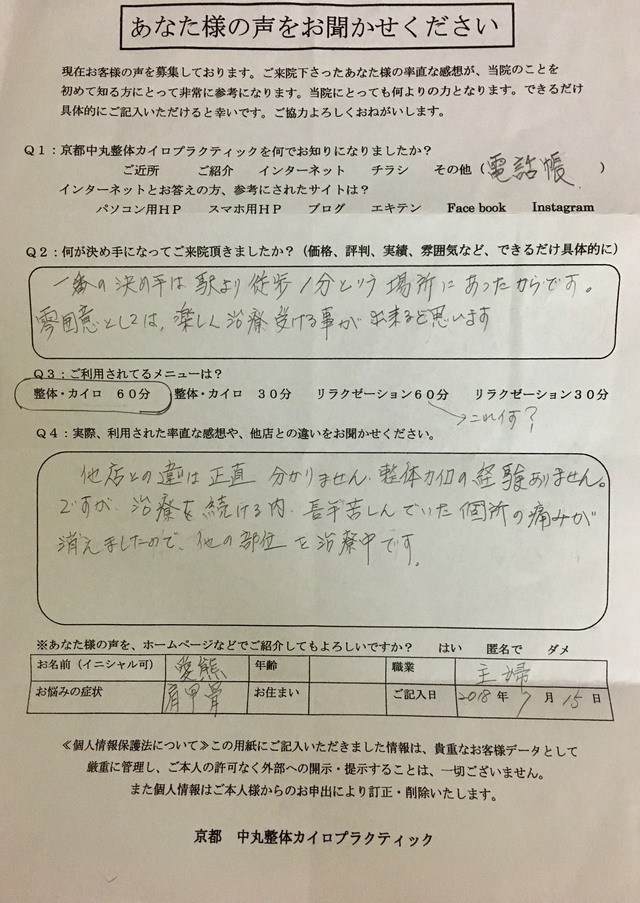 あなた様の声をお聞かせください
現在お客様の声を募集しております。ご来院下さったあなた様の率直な感想が、当院のことを
初めて知る方にとって非常に参考になります。当院にとっても何よりの力となります。できるだけ
具体的にご記入いただけると幸いです。ご協力よろしくおねがいします。
Q1：京都中丸整体カイロプラクティックを何でお知りになりましたか？
ご近所 ご紹介 インターネット チラシ その他（電話帳）
インターネットとお答えの方、参考にされたサイトは？
パソコン用HP スマホ用HP ブログ エキテン Face book Instagram
Q2：何が決め手になってご来院頂きましたか？（価格、評判、実績、雰囲気など、できるだけ具体的に）
一番の決め手は駅より徒歩1分という場所にあったからです。
雰囲意としては、楽しく治療受ける事が出来ると思います
Q3：ご利用されてるメニューは？
整体・カイロ 60分 整体・カイロ 30分 リラクゼーション60分 リラクゼーション30分
→これ何？
Q4：実際、利用された率直な感想や、他店との違いをお聞かせください。
他店との違いは正直 分かりません、整体カイロの経験ありません。
ですが、治療を続ける内、長年苦しんでいた個所の痛みが
消えましたので、他の部位を治療中です。
※あなた様の声を、ホームページなどでご紹介してもよろしいですか？ はい 匿名で ダメ
お名前（イニシャル可） 愛熊 年齢 職業 主婦
お悩みの症状 肩甲骨 お住まい ご記入日 2018年 7月 15日
≪個人情報保護法について≫この用紙にご記入いただきました情報は、貴重なお客様データとして
厳重に管理し、ご本人の許可なく外部への開示・提示することは、一切ございません。
また個人情報はご本人様からのお申出により訂正・削除いたします。
京都 中丸整体カイロプラクティック